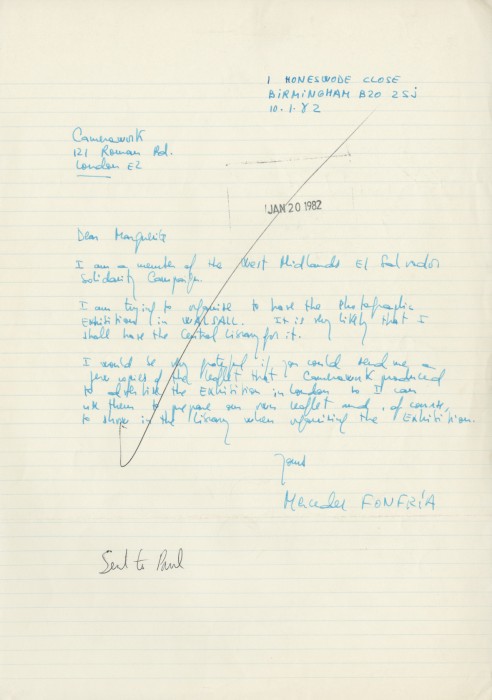 1 HONESWODE CLOSE
BIRMINGHAM B20 2SJ
10.1.82
Camerawork
121 Roman Rd.
London E2
JAN 20 1982
Dear Marguerite
I am a member of the West Midlands El Salvador
Solidarity Campaign.
I am trying to organise to have the Photographic
Exhibition in WALSALL. It is very likely that I
shall have the Central Library for it.
I would be very grateful if you could send me a
few copies of the leaflet that Camerawork produced
to advertise the Exhibition in London so I can
use them to prepare our own leaflet and, of course,
to show in the library when organising the Exhibition.
Yours
FONFRÍA
Sent to Paul